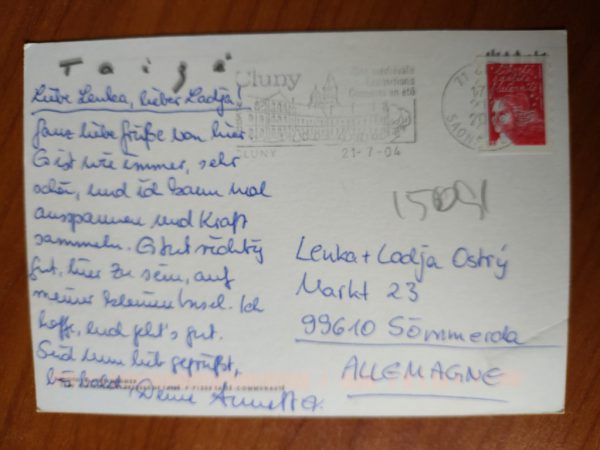 Taizé
Cluny
Ville médiévale
Expositions
Concerts en été
CLUNY
21-7-04
SAONE
Liebe Lenka, lieber Ladja!
Ganz liebe Grüße von hier
Es ist wie immer, sehr
schön, und ich kann mal
ausspannen und Kraft
sammeln. Es tut richtig
gut, hier zu sein, auf
meiner kleinen Insel. Ich
hoffe, euch geht's gut.
Seid nun lieb gegrüßt,
bis bald, Deine Annett
15091
Lenka + Ladja Ostrý
Markt 23
99610 Sömmerda
ALLEMAGNE
TAIZÉ-COMMUNAUTÉ